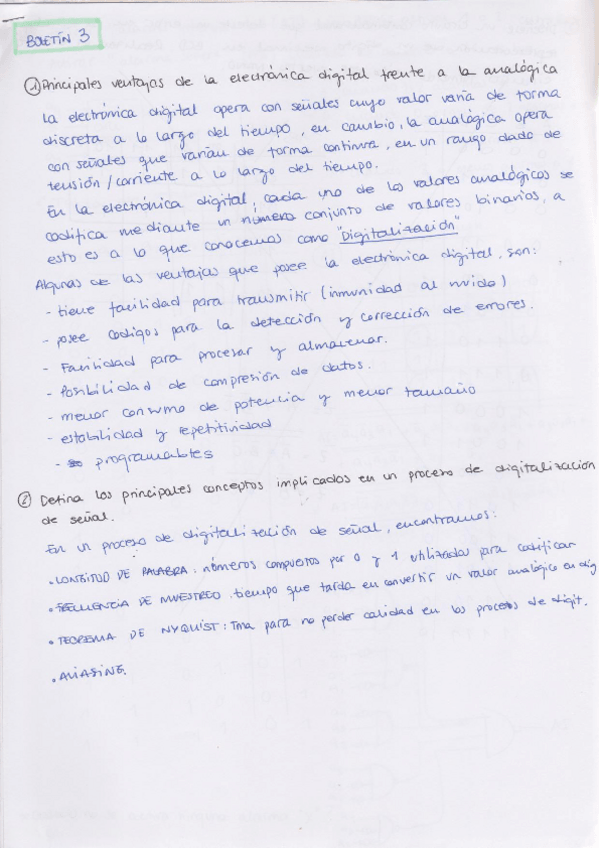 BOLETÍN 3
① Principales ventajas de la electrónica digital frente a la analógica
La electrónica digital opera con señales cuyo valor varía de forma
discreta a lo largo del tiempo, en cambio, la analógica opera
con señales que varían de forma continua, en un rango dado de
tensión/corriente a lo largo del tiempo.
En la electrónica digital, cada uno de los valores analógicos se
codifica mediante un número conjunto de valores binarios, a
esto es a lo que conocemos como "Digitalización"
Algunas de las ventajas que posee la electrónica digital, son:
- tiene facilidad para transmitir (inmunidad al ruido)
- posee codigos para la detección y corrección de errores.
- Facilidad para procesar y almacenar.
- Posibilidad de compresión de datos.
- menor consumo de potencia y menor tamaño
- estabilidad y repetitividad
- programables
② Defina los principales conceptos implicados en un proceso de digitalización
de señal.
En un proceso de digitalización de señal, encontramos:
• LONGITUD DE PALABRA: números compuestos por 0 y 1 utilizados para codificar
• FRECUENCIA DE MUESTREO: tiempo que tarda en convertir un valor analógico en dig
• TEOREMA DE NYQUIST: Tma para no perder calidad en los procesos de digit.
• ALIASING.